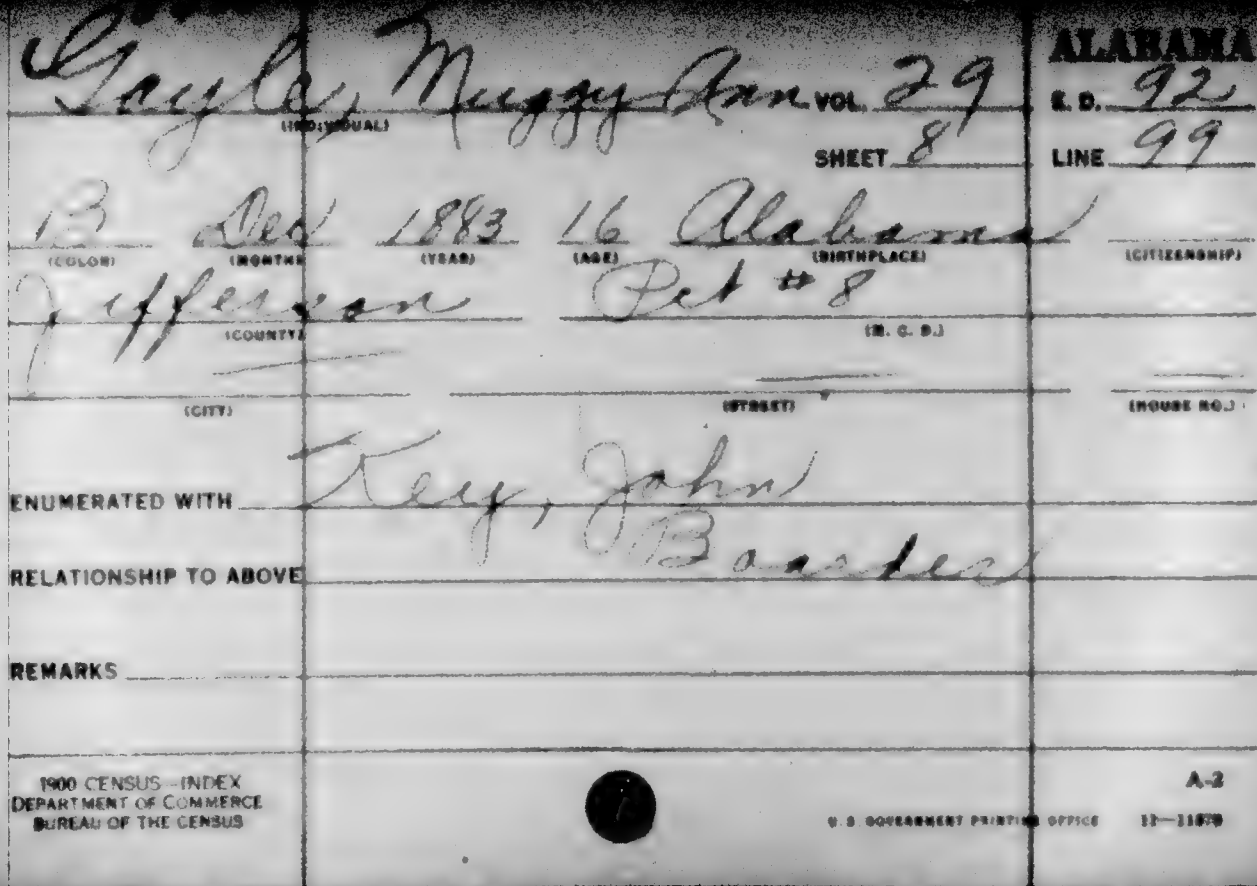 ALABAMA
Gayle, Muggy Ann VOL. 29 E. D. 92
(INDIVIDUAL)
SHEET 8 LINE 99
B Dec 1883 16 Alabama
(COLOR) (MONTH) (YEAR) (AGE) (BIRTHPLACE) (CITIZENSHIP)
Jefferson Pct #8
(COUNTY) (M. C. D.)
(CITY) (STREET) (HOUSE NO.)
ENUMERATED WITH Key, John
RELATIONSHIP TO ABOVE Boarder
REMARKS
1900 CENSUS—INDEX A-2
DEPARTMENT OF COMMERCE
BUREAU OF THE CENSUS U. S. GOVERNMENT PRINTING OFFICE